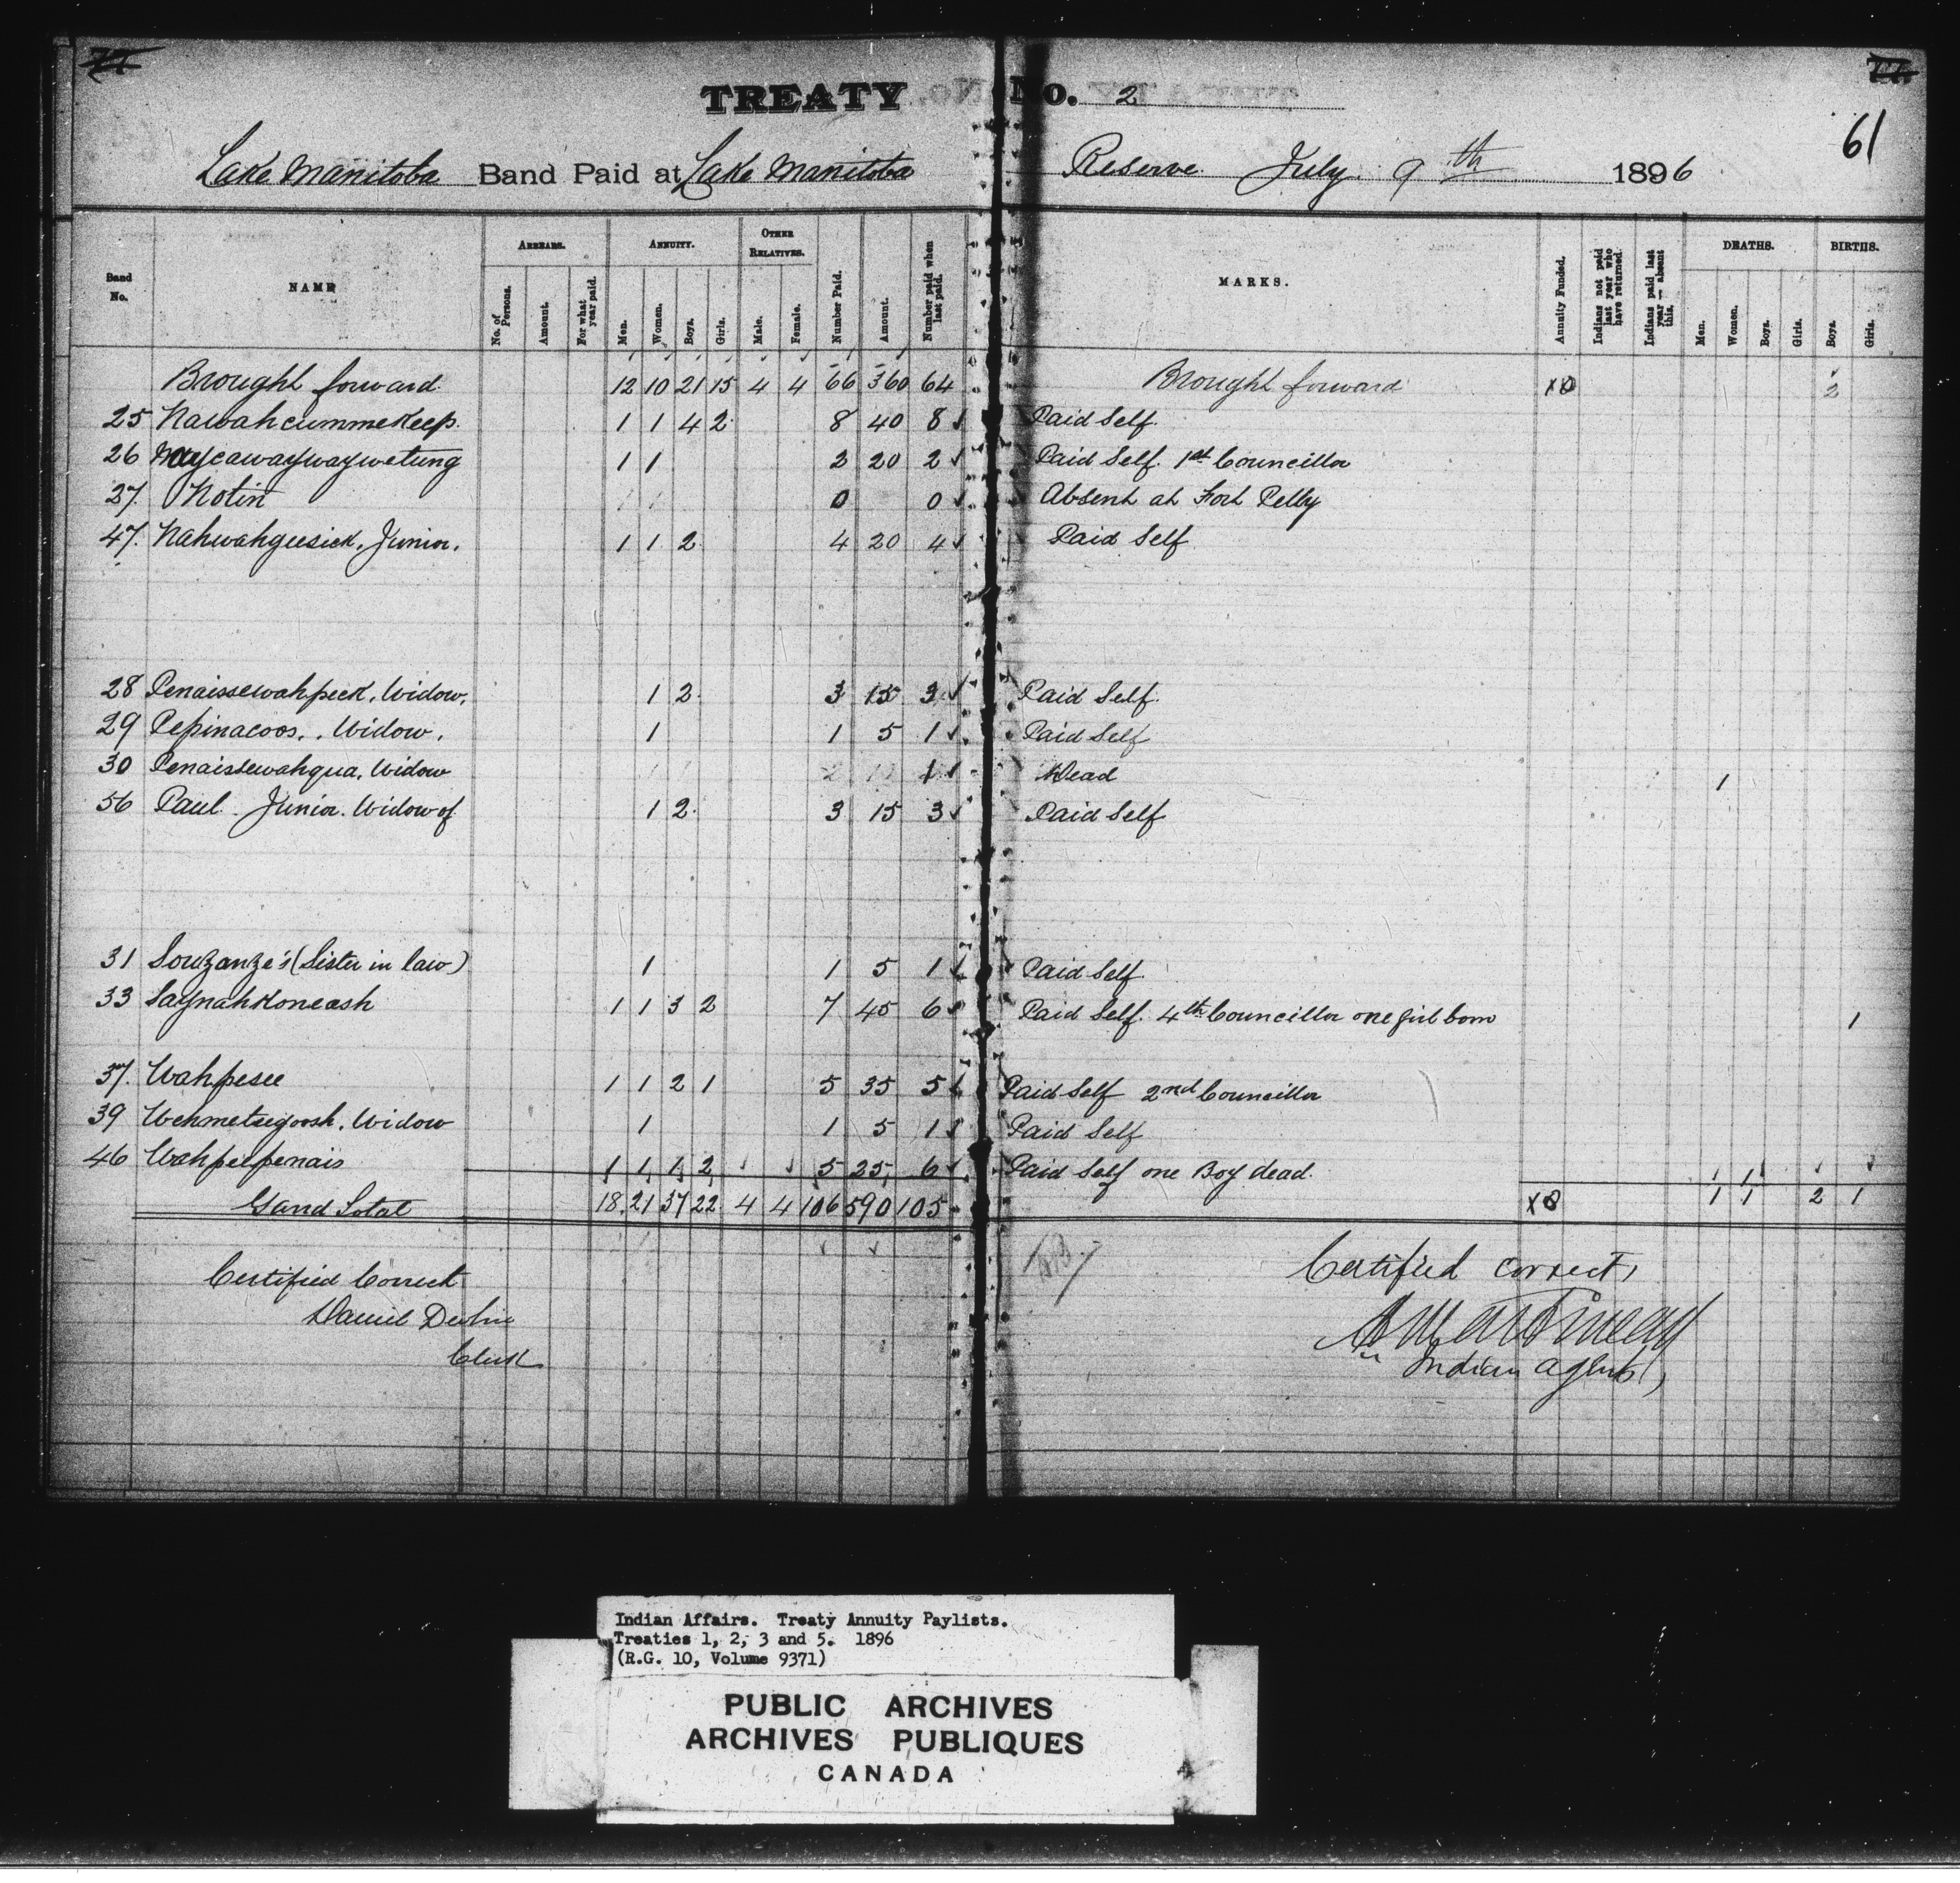 TREATY No. 2
61
Lake Manitoba Band Paid at Lake Manitoba Reserve July 9th 1896
Band No. NAME ARREARS. No. of Persons. Amount. For what year paid. ANNUITY. Men. Women. Boys. Girls. OTHER RELATIVES. Male. Female. Number Paid. Amount. Number paid when last paid. MARKS. Annuity Funded. Indians not paid last year who have returned. Indians paid last year — absent this. DEATHS. Men. Women. Boys. Girls. BIRTHS. Boys. Girls.
Brought forward 12 10 21 15 4 4 66 360 64 Brought forward 2
25 Nawahcummekeep. 1 1 4 2 8 40 8 Paid Self.
26 Maycawaywaywetung 1 1 2 20 2 Paid Self. 1st Councillor
27. Notin 0 0 Absent at Fort Pelly
47. Nahwahgeesick, Junior. 1 1 2 4 20 4 Paid Self
28 Penaissewahpeek, Widow. 1 2 3 15 3 Paid Self.
29 Pepinacoos. Widow. 1 1 5 1 Paid Self
30 Penaissewahqua, Widow 1 Dead 1
56 Paul Junior. Widow of 1 2 3 15 3 Paid Self
31 Souzanze's (Sister in law) 1 1 5 1 Paid Self
33 Saynahkoneash 1 1 3 2 7 45 6 Paid Self. 4th Councillor one girl born 1
37. Wahpesee 1 1 2 1 5 35 5 Paid Self 2nd Councillor
39 Wehmetsegoosh. Widow 1 1 5 1 Paid Self
46 Wahpeepenais 1 1 1 2 5 25 6 Paid Self one Boy dead. 1
Grand Total 18 21 37 22 4 4 106 590 105 1 1 2 1
Certified Correct
Daniel Devlin
Clerk
Certified correct,
Indian agent,
Indian Affairs. Treaty Annuity Paylists.
Treaties 1, 2, 3 and 5. 1896
(R.G. 10, Volume 9371)
PUBLIC ARCHIVES
ARCHIVES PUBLIQUES
CANADA